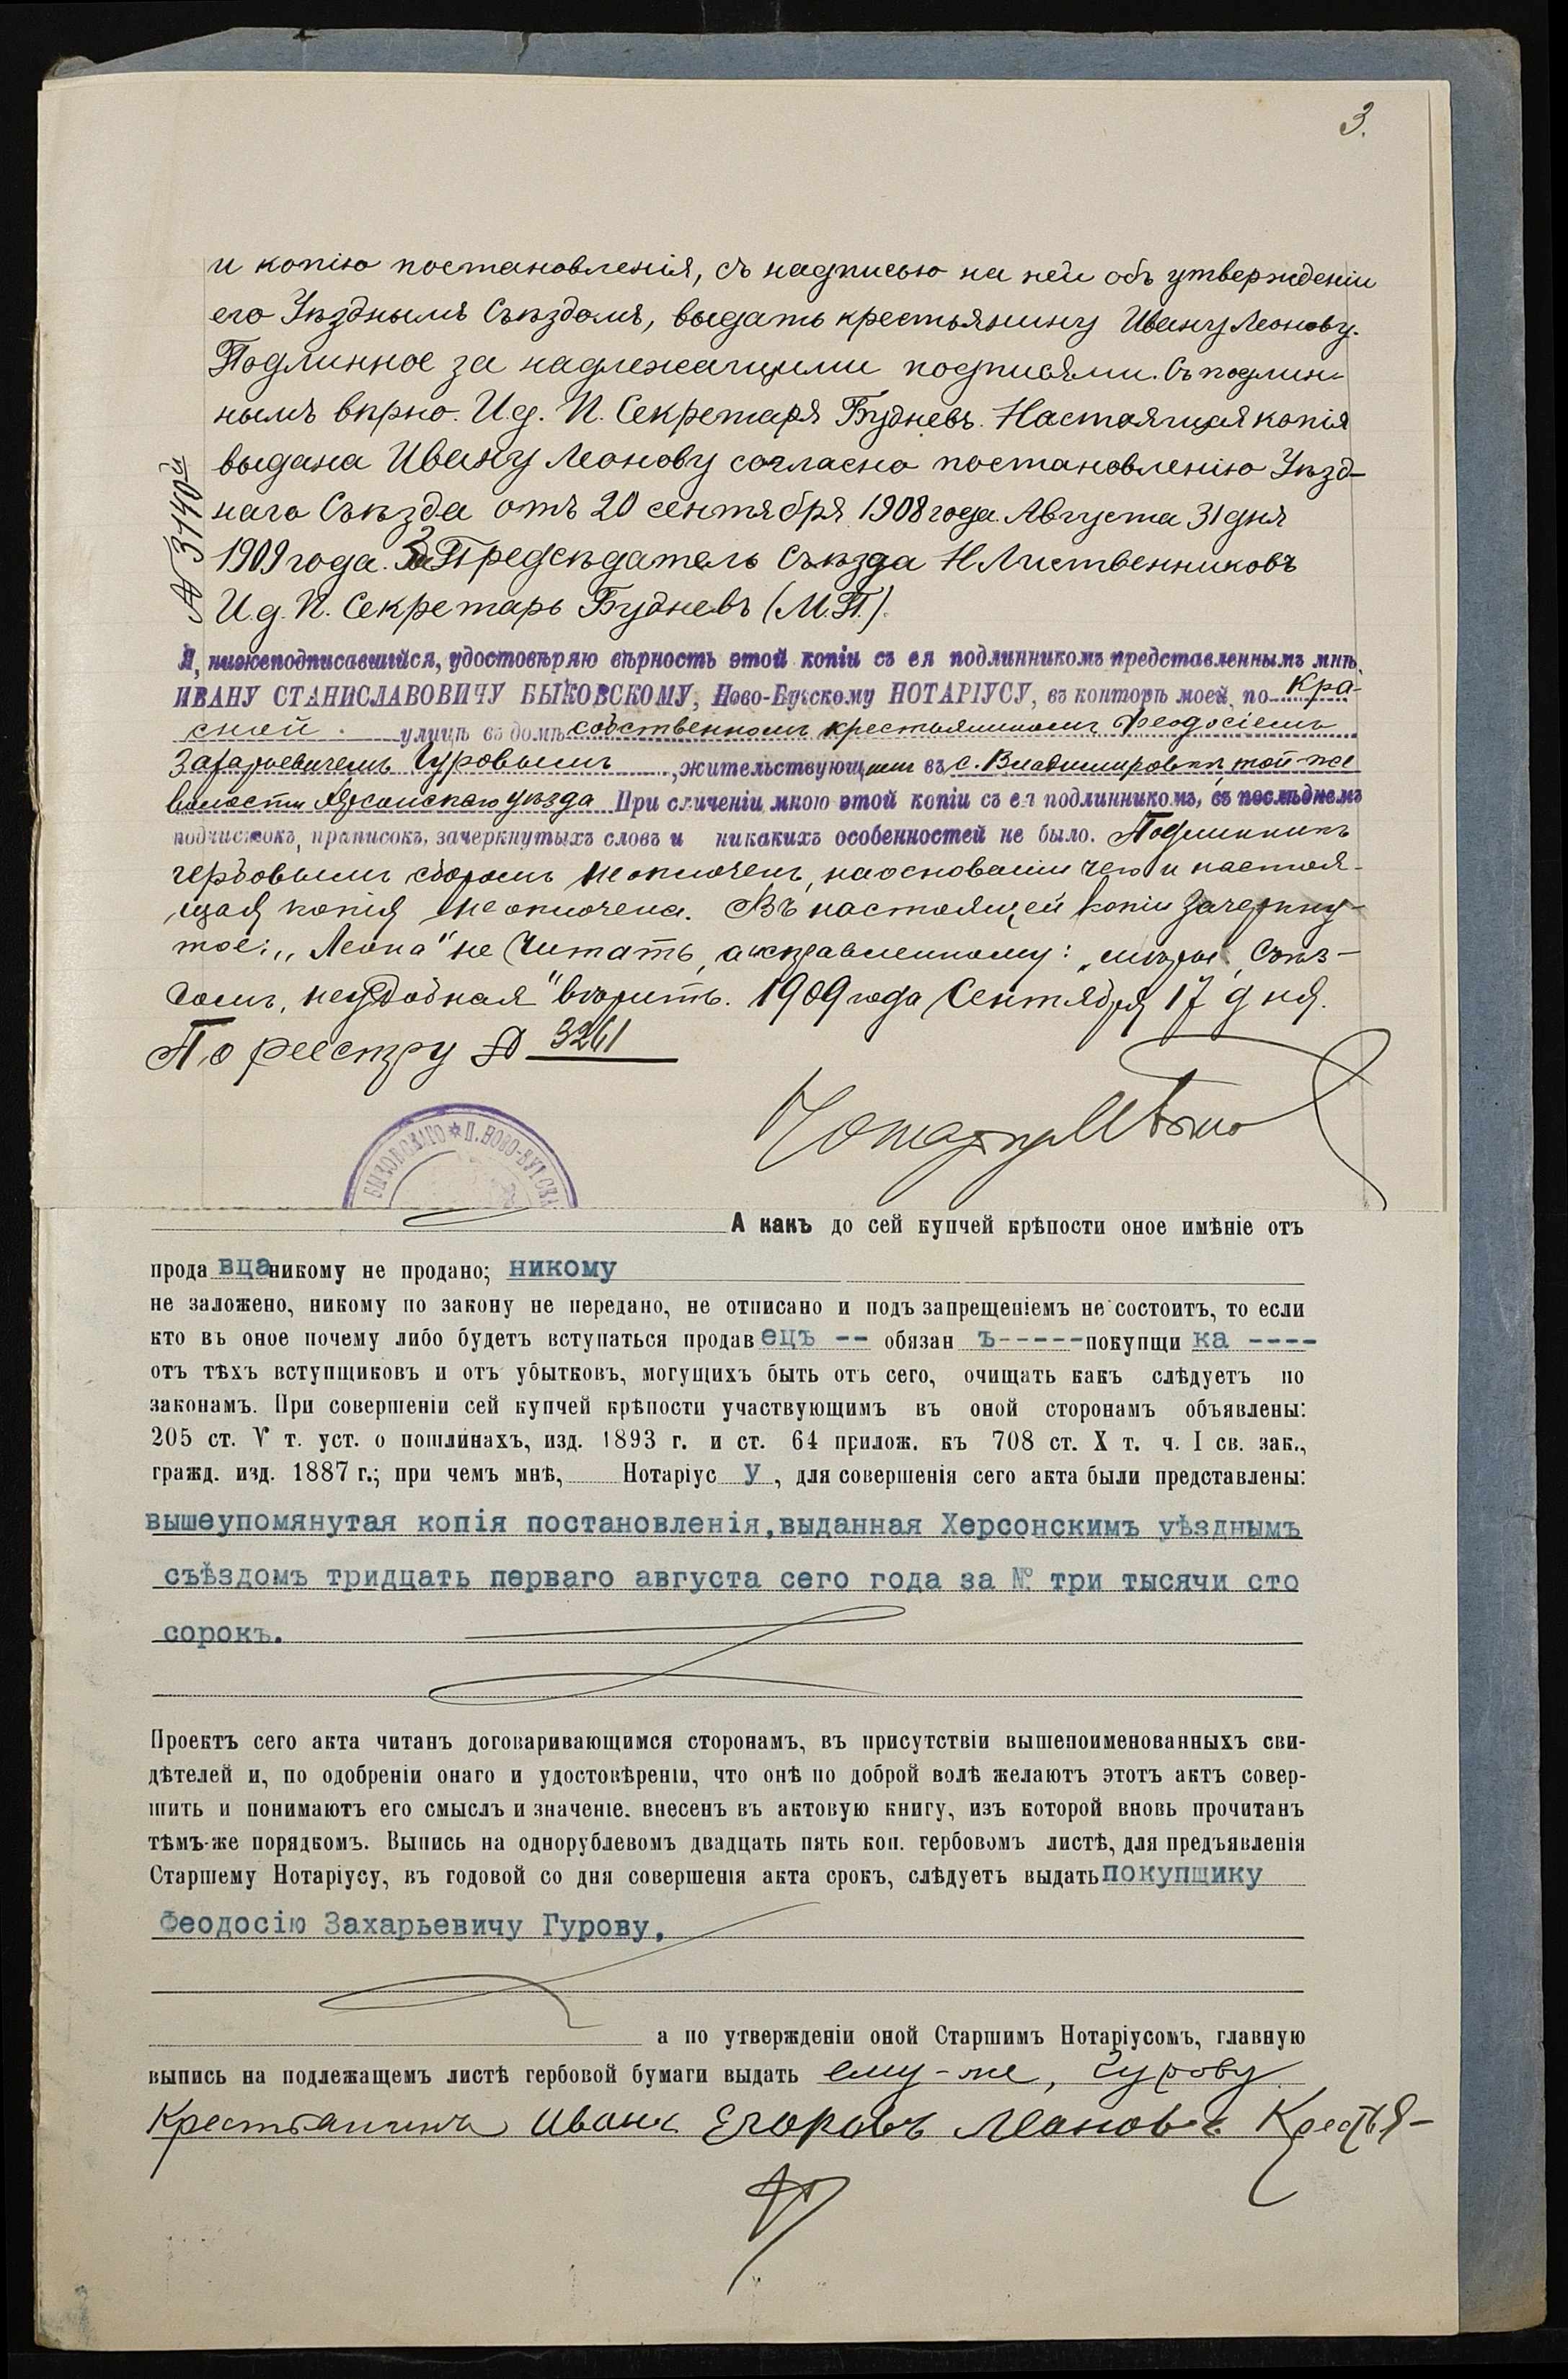 3.
и копію постановленія, съ надписью на ней объ утвержденіи
его Уѣзднымъ Съѣздомъ, выдать крестьянину Ивану Леонову.
Подлинное за надлежащими подписями. Съ подлин-
нымъ вѣрно. И.д. П. Секретаря Будневъ. Настоящая копія
выдана Ивану Леонову согласно постановленію Уѣзд-
наго Съѣзда отъ 20 сентября 1908 года. Августа 31 дня
1909 года. За Предсѣдатель Съѣзда Н Лиственниковъ
И.д. П. Секретарь Будневъ (М.П.).
№ 3140й
Я, нижеподписавшійся, удостовѣряю вѣрность этой копіи съ ея подлинникомъ представленнымъ мнѣ,
ИВАНУ СТАНИСЛАВОВИЧУ БЫКОВСКОМУ, Ново-Бугскому НОТАРІУСУ, въ конторѣ моей, по Кра-
сной улицѣ въ домѣ собственномъ крестьяниномъ Феодосіемъ
Захарьевичемъ Гуровымъ, жительствующимъ въ с. Владимировкѣ, той-же
волости Херсонскаго уѣзда При сличеніи мною этой копіи съ ея подлинникомъ, въ послѣднемъ
подчистокъ, приписокъ, зачеркнутыхъ словъ и никакихъ особенностей не было. Подлинникъ
гербовымъ сборомъ не оплоченъ, на основаніи чего и настоя-
щая копія не оплочена. Въ настоящей копіи зачеркну-
тое: „Леона" не читать, а исправленному: „ Съѣз-
домъ, неудобная" вѣрить. 1909 года Сентября 17 дня.
По реестру № 3261
Нотаріусъ
БЫКОВСКАГО * П. НОВО-БУГСКА
А какъ до сей купчей крѣпости оное имѣніе отъ
прода вца никому не продано; никому
не заложено, никому по закону не передано, не отписано и подъ запрещеніемъ не состоитъ, то если
кто въ оное почему либо будетъ вступаться продав ецъ -- обязан ъ-----покупщи ка ----
отъ тѣхъ вступщиковъ и отъ убытковъ, могущихъ быть отъ сего, очищать какъ слѣдуетъ по
законамъ. При совершеніи сей купчей крѣпости участвующимъ въ оной сторонамъ объявлены:
205 ст. V т. уст. о пошлинахъ, изд. 1893 г. и ст. 64 прилож. къ 708 ст. X т. ч. I св. зак.,
гражд. изд. 1887 г.; при чемъ мнѣ, Нотаріус у, для совершенія сего акта были представлены:
вышеупомянутая копія постановленія, выданная Херсонскимъ уѣзднымъ
съѣздомъ тридцать перваго августа сего года за № три тысячи сто
сорокъ.
Проектъ сего акта читанъ договаривающимся сторонамъ, въ присутствіи вышепоименованныхъ сви-
дѣтелей и, по одобреніи онаго и удостовѣреніи, что онѣ по доброй волѣ желаютъ этотъ актъ совер-
шить и понимаютъ его смыслъ и значеніе. внесенъ въ актовую книгу, изъ которой вновь прочитанъ
тѣмъ-же порядкомъ. Выпись на однорублевомъ двадцать пять коп. гербовомъ листѣ, для предъявленія
Старшему Нотаріусу, въ годовой со дня совершенія акта срокъ, слѣдуетъ выдать покупщику
Феодосію Захарьевичу Гурову,
а по утвержденіи оной Старшимъ Нотаріусомъ, главную
выпись на подлежащемъ листѣ гербовой бумаги выдать ему-же, Гурову
Крестьянинъ Иванъ Егоровъ Леоновъ. Крестья-